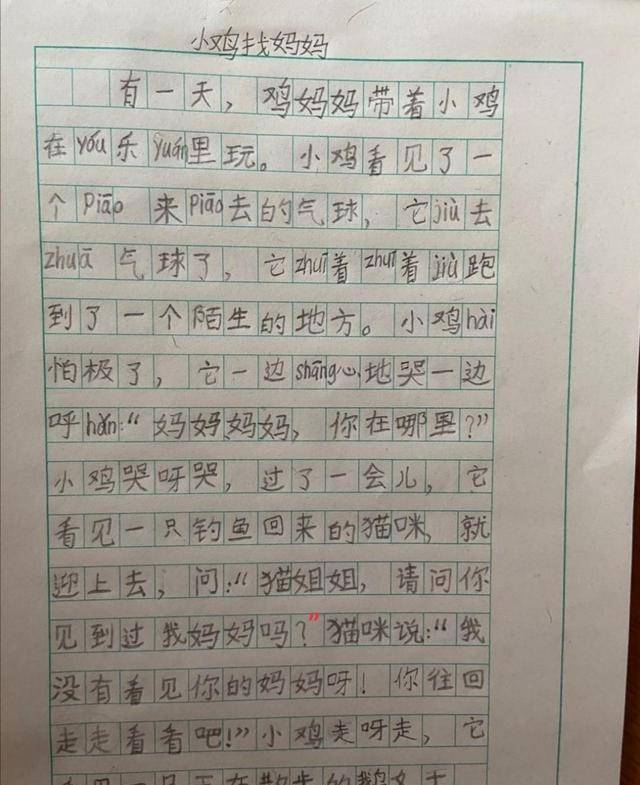 小鸡找妈妈
有一天，鸡妈妈带着小鸡
在yóu乐yuán里玩。小鸡看见了一
个piāo来piāo去的气球，它jiù去
zhuā气球了，它zhuī着zhuī着jiù跑
到了一个陌生的地方。小鸡hài
怕极了，它一边shāng心地哭一边
呼hǎn：“妈妈妈妈，你在哪里？”
小鸡哭呀哭，过了一会儿，它
看见一只钓鱼回来的猫咪，就
迎上去，问：“猫姐姐，请问你
见到过我妈妈吗？”猫咪说：“我
没有看见你的妈妈呀！你往回
走走看看吧！”小鸡走呀走，它